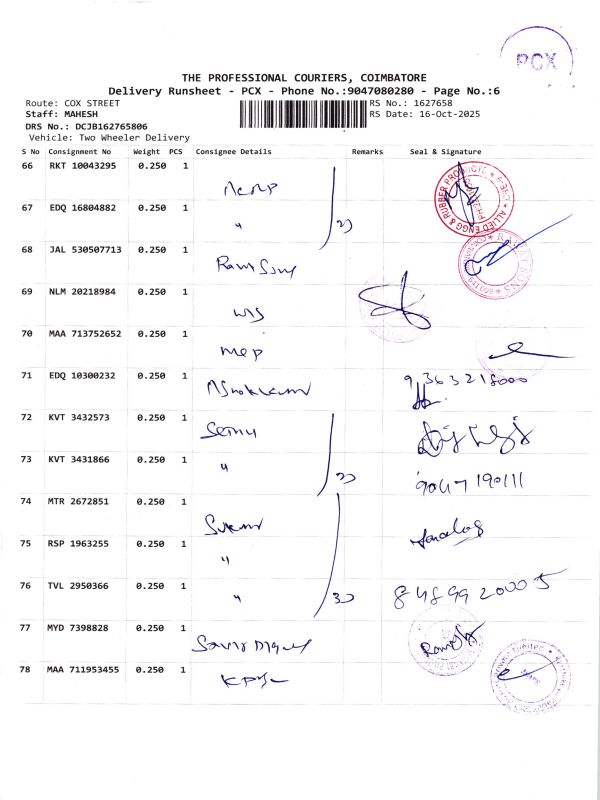 PCX
THE PROFESSIONAL COURIERS, COIMBATORE
Delivery Runsheet - PCX - Phone No.:9047080280 - Page No.:6
Route: COX STREET
RS No.: 1627658
Staff: MAHESH
RS Date: 16-Oct-2025
DRS No.: DCJB162765806
Vehicle: Two Wheeler Delivery
S No Consignment No Weight PCS Consignee Details Remarks Seal & Signature
66 RKT 10043295 0.250 1
67 EDQ 16804882 0.250 1 "
68 JAL 530507713 0.250 1
69 NLM 20218984 0.250 1
70 MAA 713752652 0.250 1 MEP
71 EDQ 10300232 0.250 1 Ashokkumar
72 KVT 3432573 0.250 1
73 KVT 3431866 0.250 1 " 9047190111
74 MTR 2672851 0.250 1
75 RSP 1963255 0.250 1 "
76 TVL 2950366 0.250 1 " 8489920005
77 MYD 7398828 0.250 1
78 MAA 711953455 0.250 1